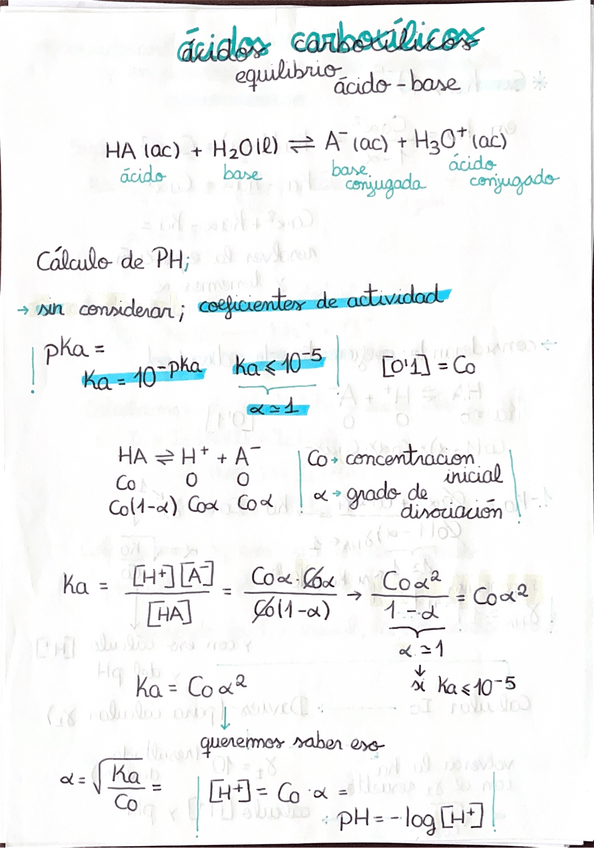 ácidos carboxílicos
equilibrio
ácido-base
HA (ac) + H₂O(l) ⇌ A⁻ (ac) + H₃O⁺ (ac)
ácido base base conjugada ácido conjugado
Cálculo de PH;
→ sin considerar; coeficientes de actividad
pKa =
Ka = 10^-pKa Ka ≤ 10⁻⁵ [0'1] = Co
α ≃ 1
HA ⇌ H⁺ + A⁻
Co 0 0
Co(1-α) Coα Coα
Co → concentracion
inicial
α → grado de
disociación
Ka = [H⁺][A⁻] / [HA] = Coα · Coα / Co(1-α) → Coα² / 1-α = Coα²
α ≃ 1
↓
si Ka ≤ 10⁻⁵
Ka = Co α²
↓
queremos saber eso
α = √(Ka / Co) = [H⁺] = Co · α =
pH = -log [H⁺]